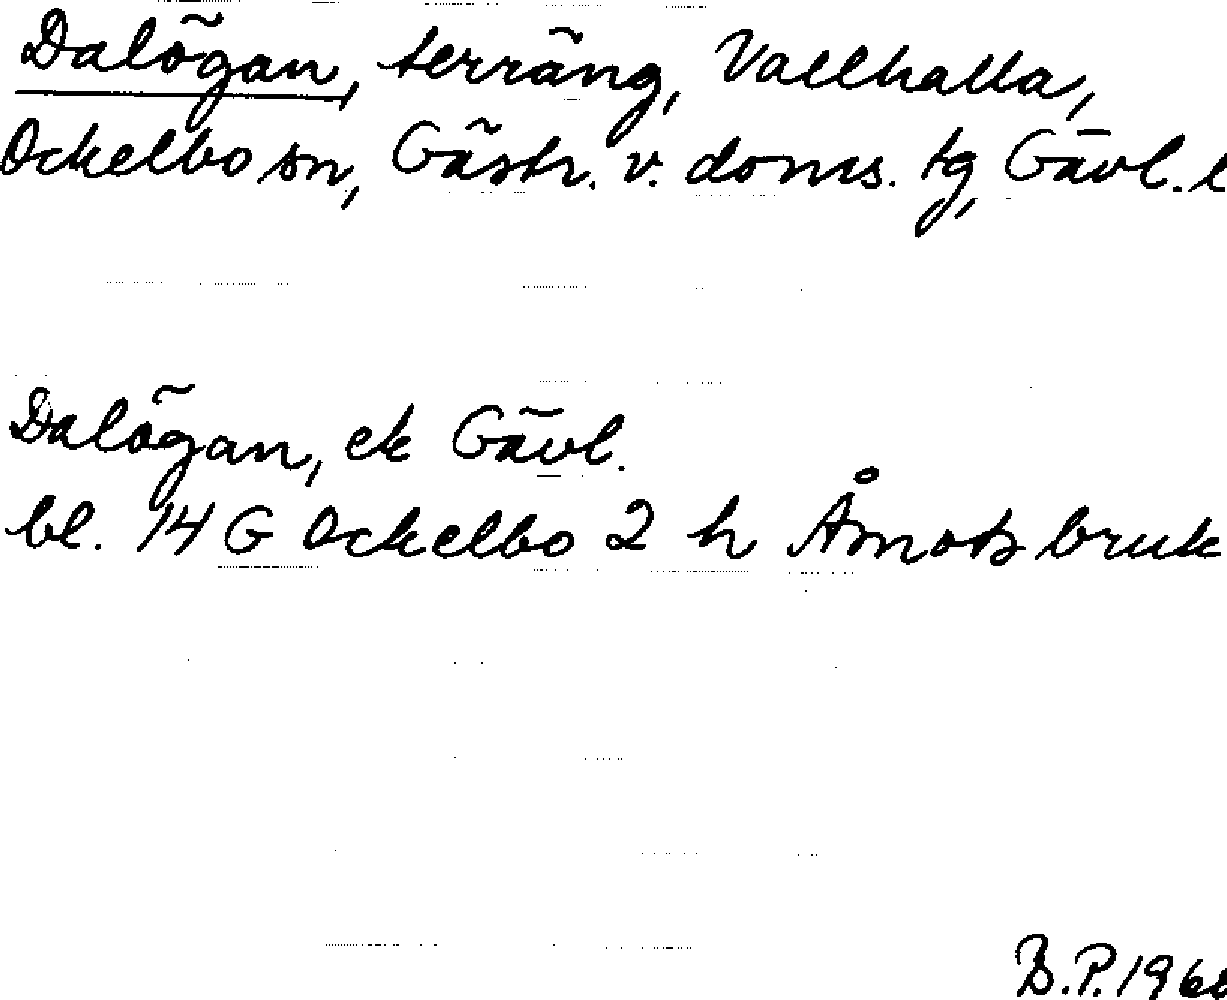 Dalögan, terräng, Vallhalla,
Ockelbo sn, Gästr. v. doms. tg, Gävl. l
Dalögan, ek Gävl.
bl. 14 G Ockelbo 2 h Åmots bruk
B.P.